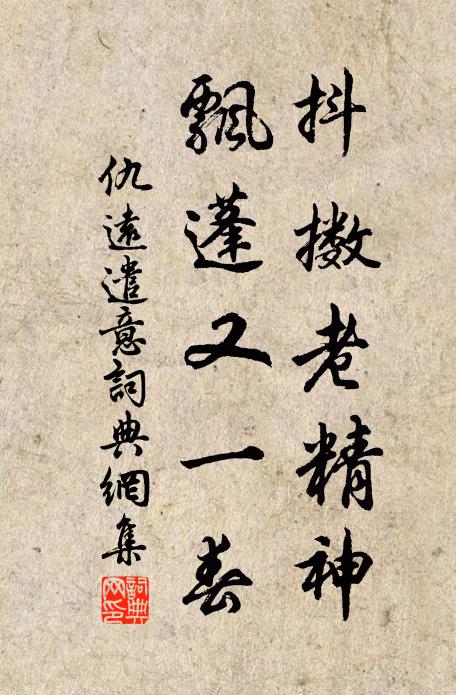 抖擻老精神
飄蓬又一春
仇遠遣意詞典網集
詞典
网印